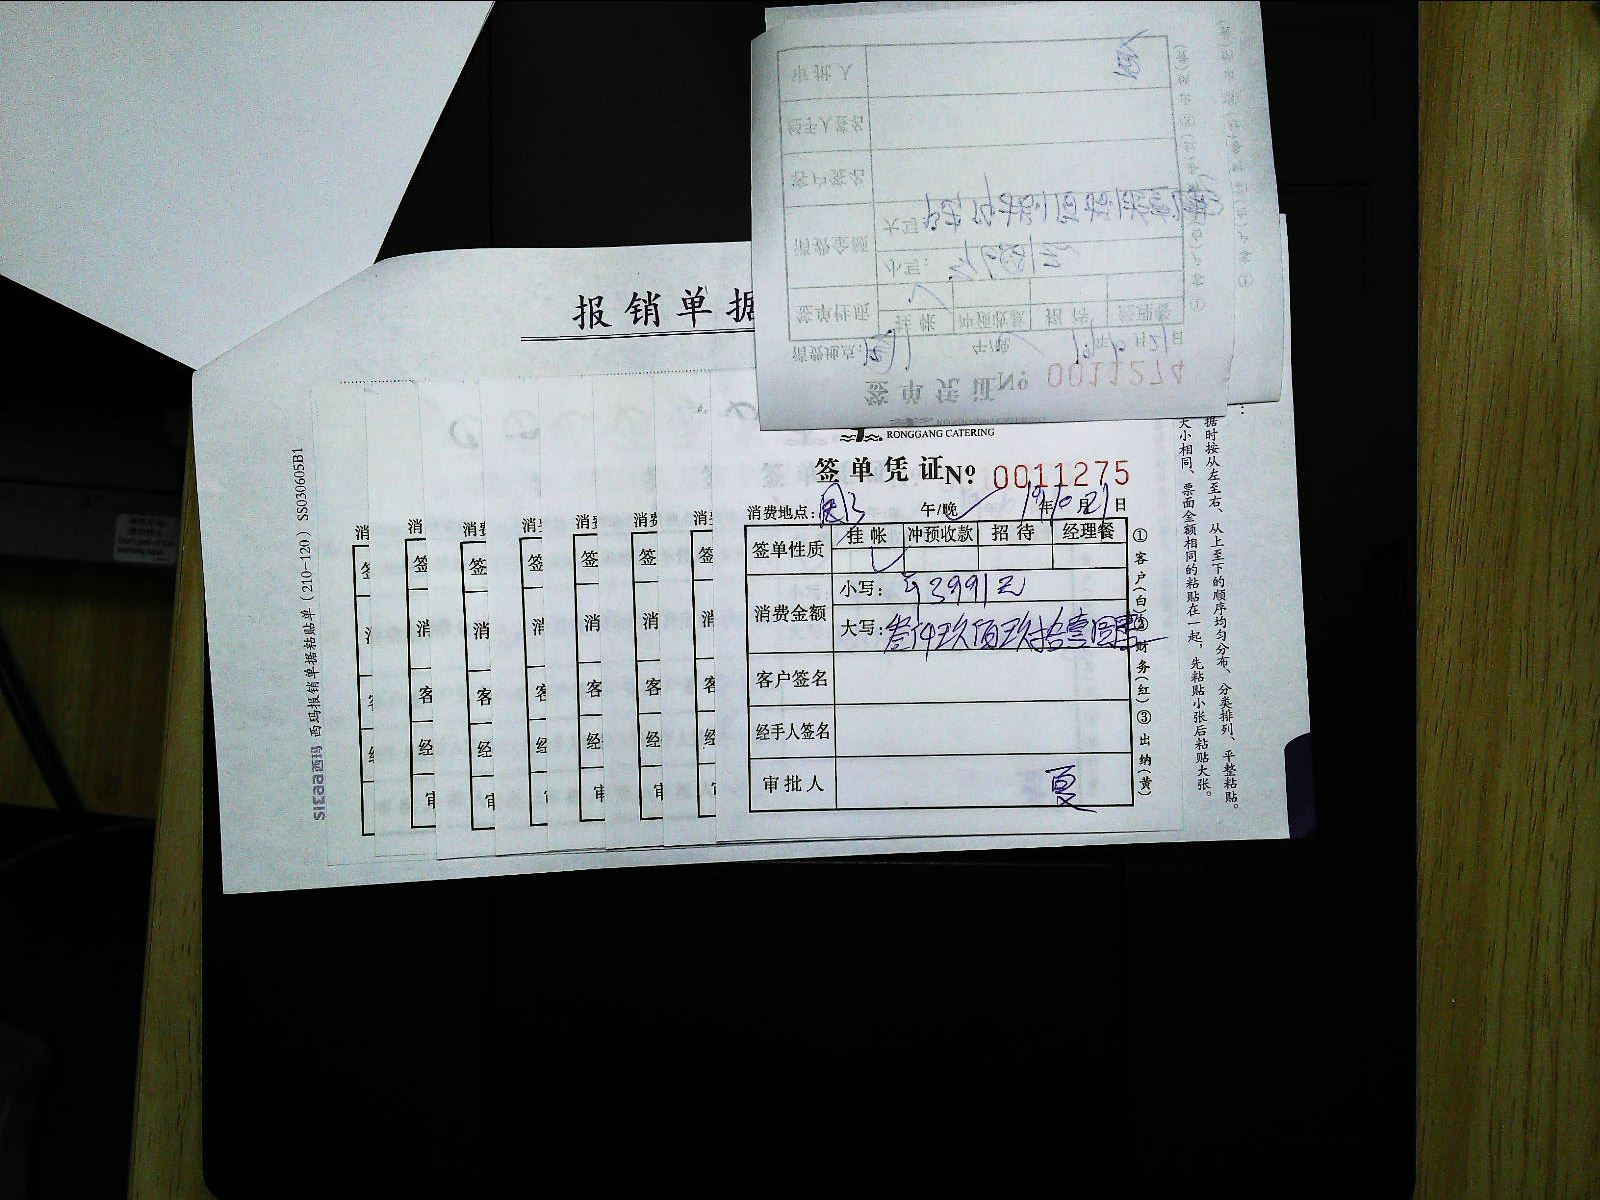 报销单据
RONGGANG CATERING
签单凭证 Nº 0011275
消费地点: 午/晚 19年10月21日
签单性质 挂帐 冲预收款 招待 经理餐
消费金额 小写: ¥3991元
大写: 叁仟玖佰玖拾壹圆整
客户签名
经手人签名
审批人 夏
①客户(白)②财务(红)③出纳(黄)
大小相同、票面金额相同的粘贴在一起,先粘贴小张后粘贴大张。
据时按从左至右、从上至下的顺序均匀分布、分类排列、平整粘贴。
签单凭证 Nº 0011274
消费地点: 午/晚 年 月21日
签单性质 挂帐 冲预收款 招待 经理餐
消费金额 小写:
大写:
客户签名
经手人签名
审批人
SIMAA西玛 西玛报销单据粘贴单(210-120) SS030605B1